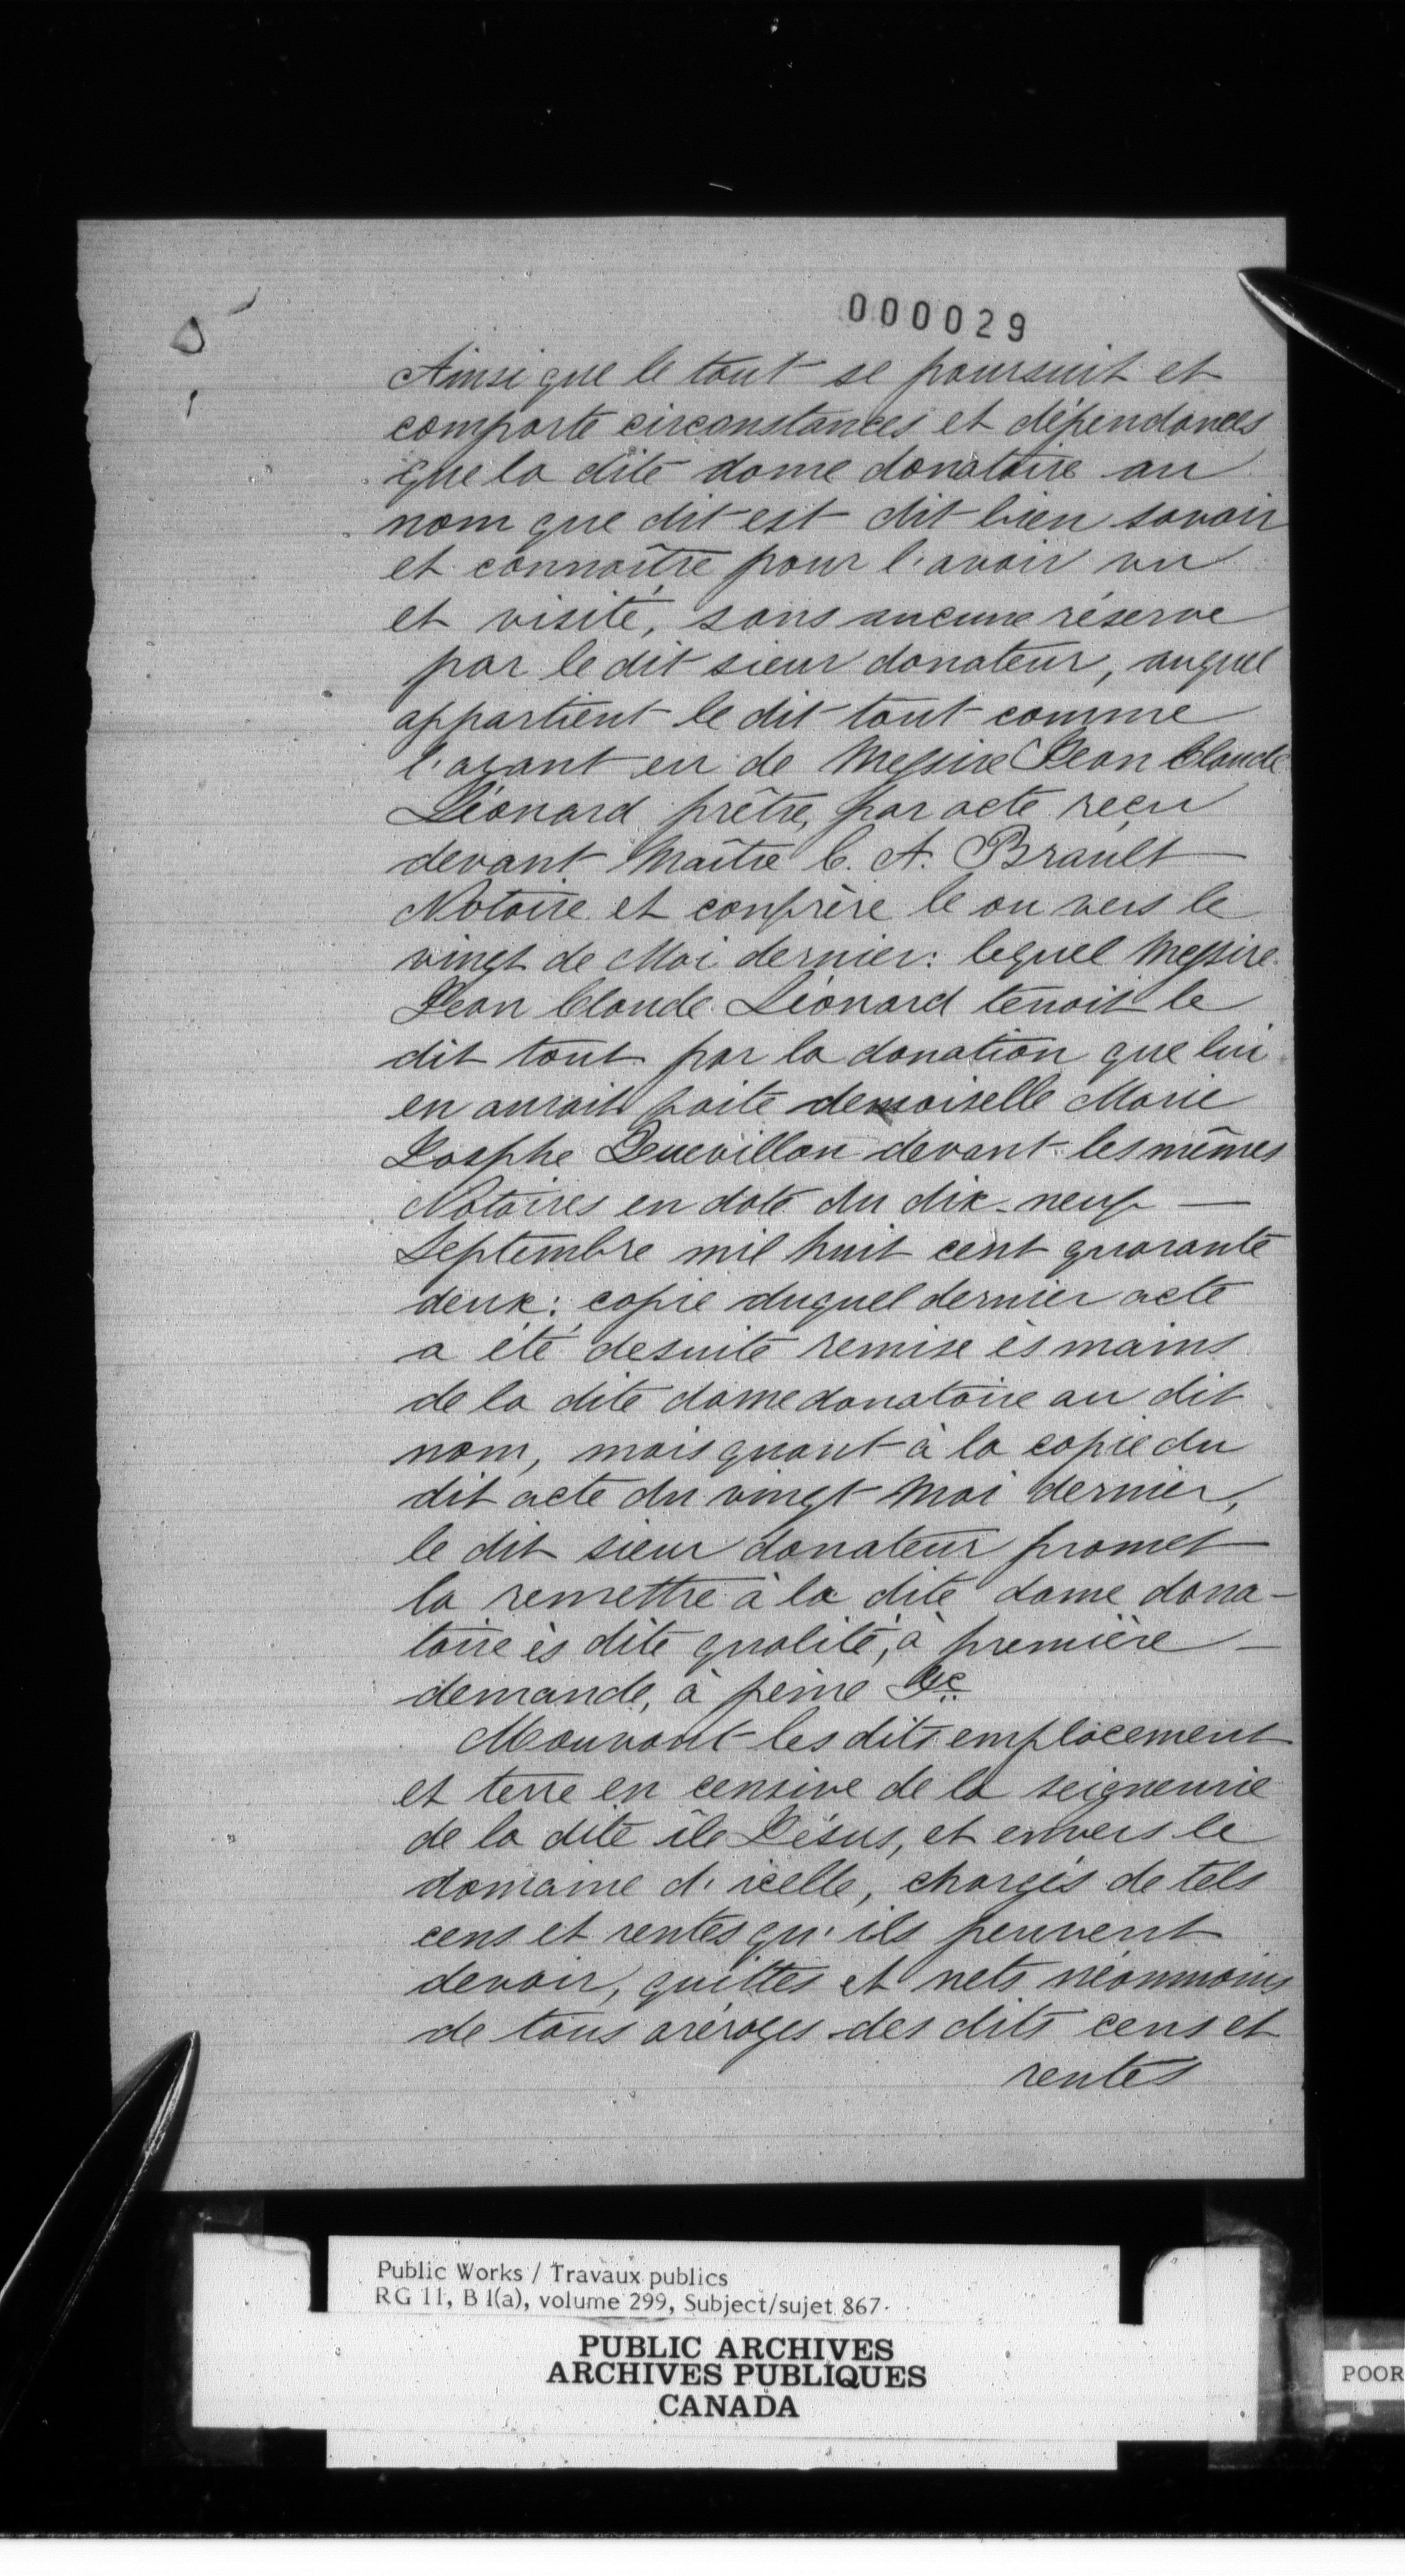 000029
Ainsi que le tout se poursuit et
comporte circonstances et dépendances
que la dite dame donataire au
nom que dit est dit bien savoir
et connaître pour l'avoir vu
et visité, sans aucune réserve
par le dit sieur donateur, auquel
appartient le dit tout comme
l'ayant eu de Messire Jean Claude
Léonard prêtre, par acte reçu
devant Maître C. A. Brault
Notaire et confrère le ou vers le
vingt de Mai dernier: lequel Messire
Jean Claude Léonard tenait le
dit tout par la donation que lui
en aurait faite demoiselle Marie
Josphe Quevillon devant les mêmes
Notaires en date du dix-neuf —
Septembre mil huit cent quarante
deux: copie duquel dernier acte
a été desuite remise ès mains
de la dite dame donataire au dit
nom, mais quant à la copie du
dit acte du vingt Mai dernier,
le dit sieur donateur promet
la remettre à la dite dame dona-
taire ès dite qualité, à première —
demande, à peine &c
Mouvant les dits emplacement
et terre en censive de la seigneurie
de la dite île Jésus, et envers le
domaine d'icelle, chargés de tels
cens et rentes qu'ils peuvent
devoir, quittes et nets néanmoins
de tous arérages des dits cens et
rentes
Public Works / Travaux publics
RG 11, B 1(a), volume 299, Subject/sujet 867.
PUBLIC ARCHIVES
ARCHIVES PUBLIQUES
CANADA
POOR